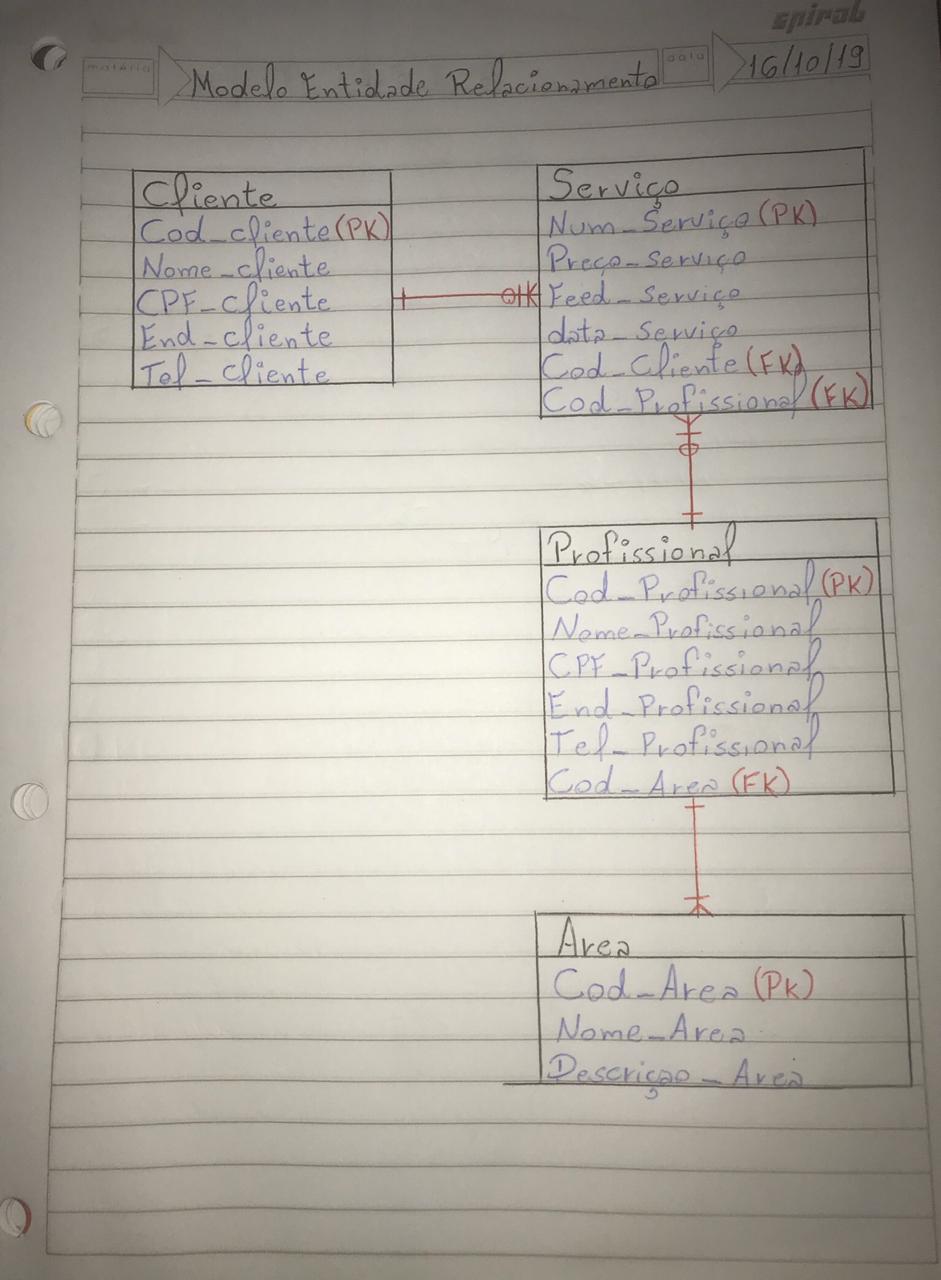 spiral
matéria
Modelo Entidade Relacionamento
data
16/10/19
Cliente
Cod_cliente (PK)
Nome_cliente
CPF_cliente
End_cliente
Tel_cliente
Serviço
Num_Serviço (PK)
Preço_Serviço
Feed_Serviço
data_Serviço
Cod_Cliente (FK)
Cod_Profissional (FK)
Profissional
Cod_Profissional (PK)
Nome_Profissional
CPF_Profissional
End_Profissional
Tel_Profissional
Cod_Area (FK)
Area
Cod_Area (PK)
Nome_Area
Descriçao_Area